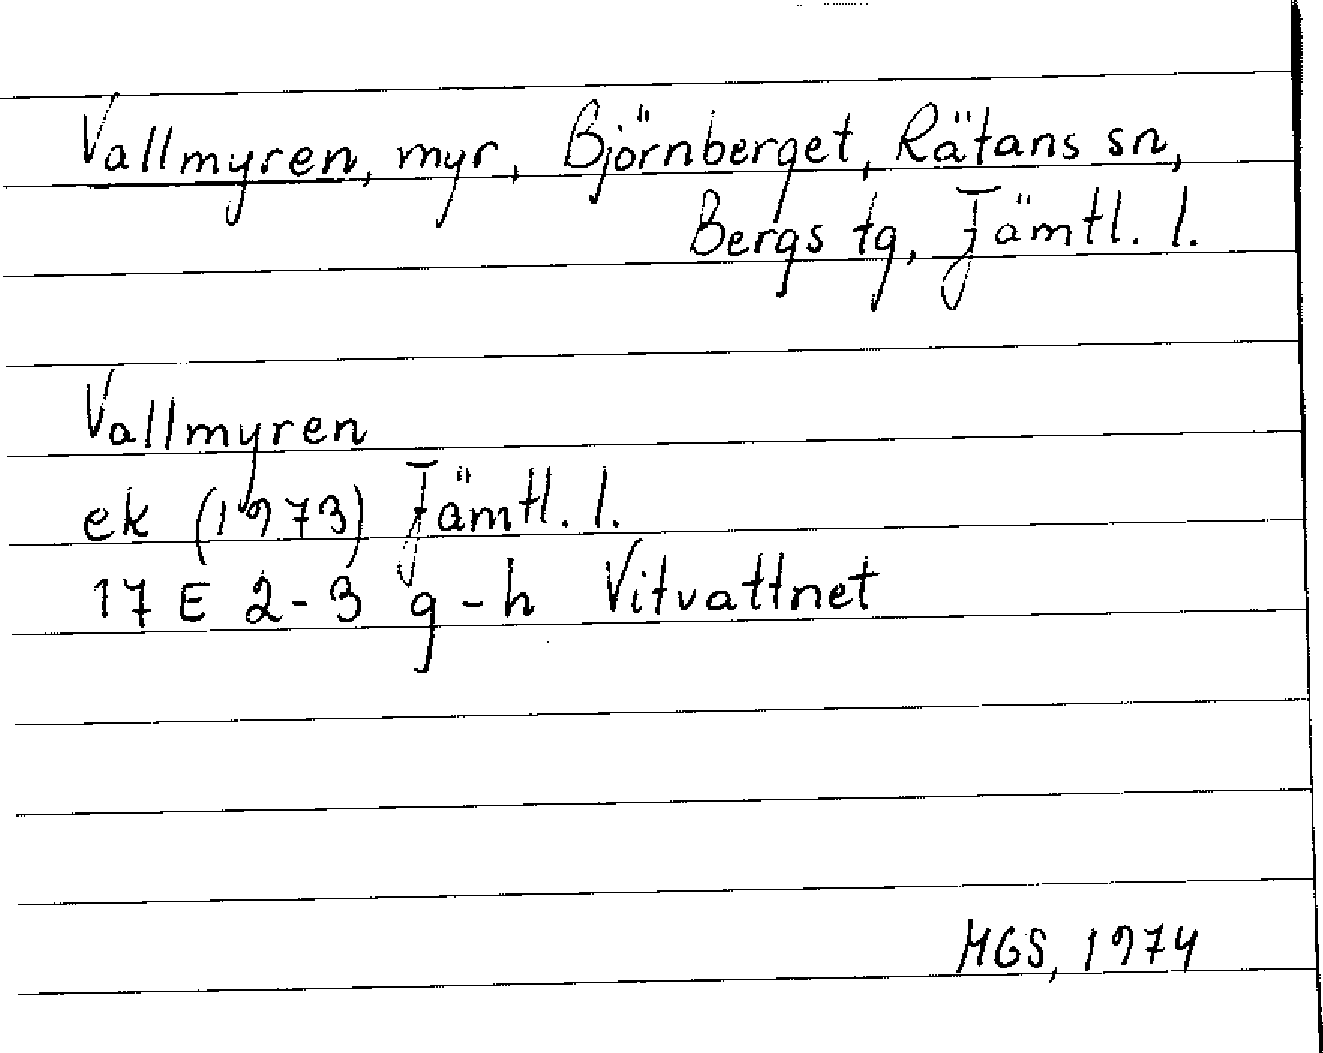 Vallmyren, myr, Björnberget, Rätans sn,
Bergs tg, Jämtl. l.
Vallmyren
ek (1973) Jämtl. l.
17 E 2-3 g-h Vitvattnet
MGS, 1974